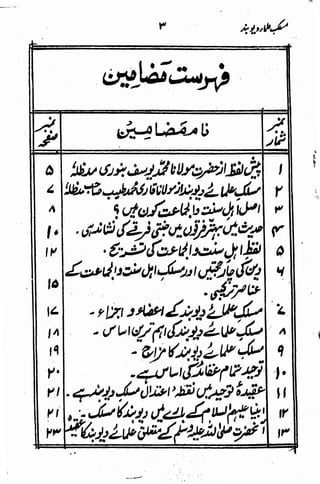 مسلک علماء دیوبند ۳
فہرست مضامین
نمبر شمار نام مضامین نمبر صفحہ
۱ پیش لفظ از حضرت مولانا محمد یوسف بنوری مدظلہٗ ۵
۲ مسلک علمائے دیوبند از مولانا قاری محمد طیب صاحب مدظلہٗ ۷
۳ اصل اہل سنت والجماعت کون ہیں؟ ۸
۴ حدیث میں بہتر فرقوں میں جنتی فرقے کی نشاندہی۔ ۱۰
۵ لفظ اہل سنت والجماعت کی تشریح۔ ۱۲
۶ دین کی چار حجتیں اور مسلک اہل سنت والجماعت کے
عناصر ترکیبی۔ ۱۵
۷ مسلک علمائے دیوبند کے اعضاء و اجزاء۔ ۱۷
۸ مسلک علمائے دیوبند کی اہم ترین اساس۔ ۱۸
۹ مسلک علمائے دیوبند کا مزاج۔ ۱۹
۱۰ توحید تمام عقائد کی اساس ہے۔ ۲۰
۱۱ عقیدۂ توحید میں نقطۂ اعتدال مسلک دیوبند ہے۔ ۲۱
۱۲ انبیاء علیہم السلام کے بارے میں دیوبند کا مسلک۔ ۲۱
۱۳ آنحضرت صلی اللہ علیہ وسلم کے متعلق علمائے دیوبند کا عقیدہ ۲۳